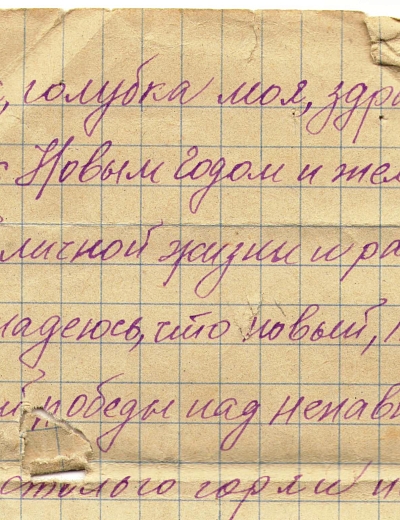 , голубка моя, здра
с Новым Годом и жел
личной жизни и ра
надеюсь, что новый, 
победы над ненави
столько горя и